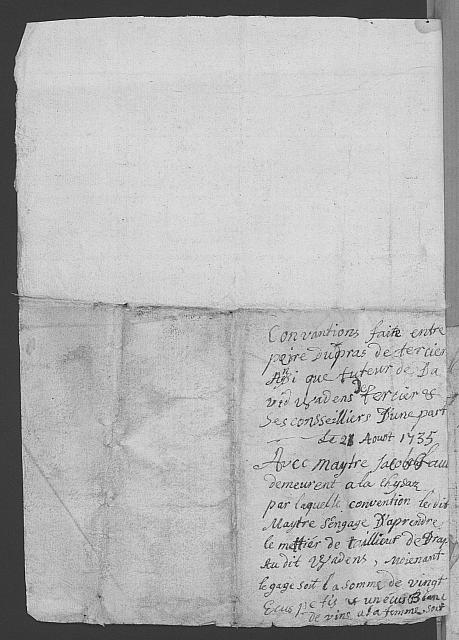 Convantions faite entre
peire Dupras de tercier
que tuteur de Da
vid Vzadens de tercier &
Ses consseilliers Dune part
Le 21 Aoust 1735
Avec maytre Jacob
demeurent a la
par laquelle convention le dit
Maytre s'engage D'aprendre
le mettier de taillieur de Drap
Au dit Vzadens, Moienant
le gage soit la somme de vingt
Ecus petis & un ecus Blanc
de vins a la femme, soit